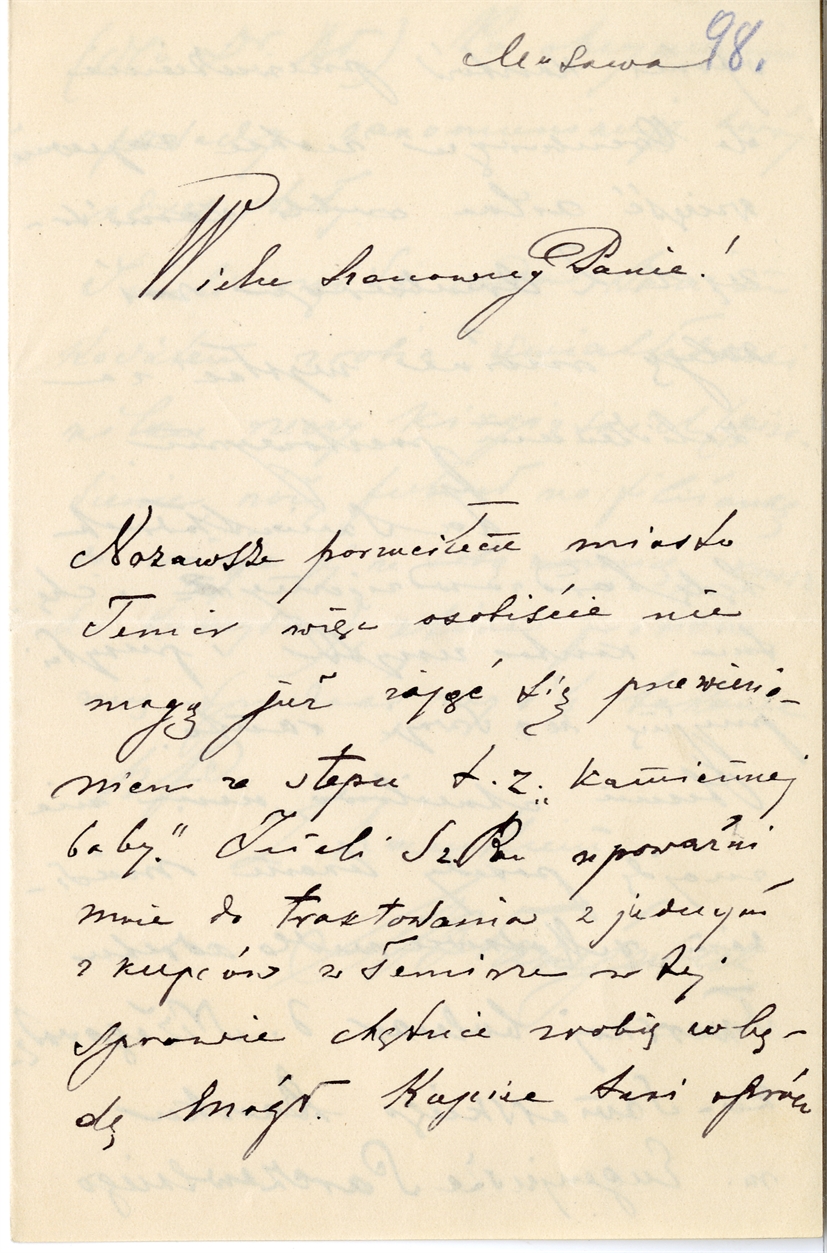 Mława 98.
Wielce Szanowny Panie!
Nazawsze porzuciłem miasto
Temir więc osobiście nie
mogę już zająć się przewiezie-
niem ze stepu t. z. „kamiennej
baby." Jeżeli Sz. Pan upoważni
mnie do traktowania z jednym
z kupców w Temirze w tej
sprawie chętnie zrobię co bę-
dę mógł. Kupiec taki oprócz